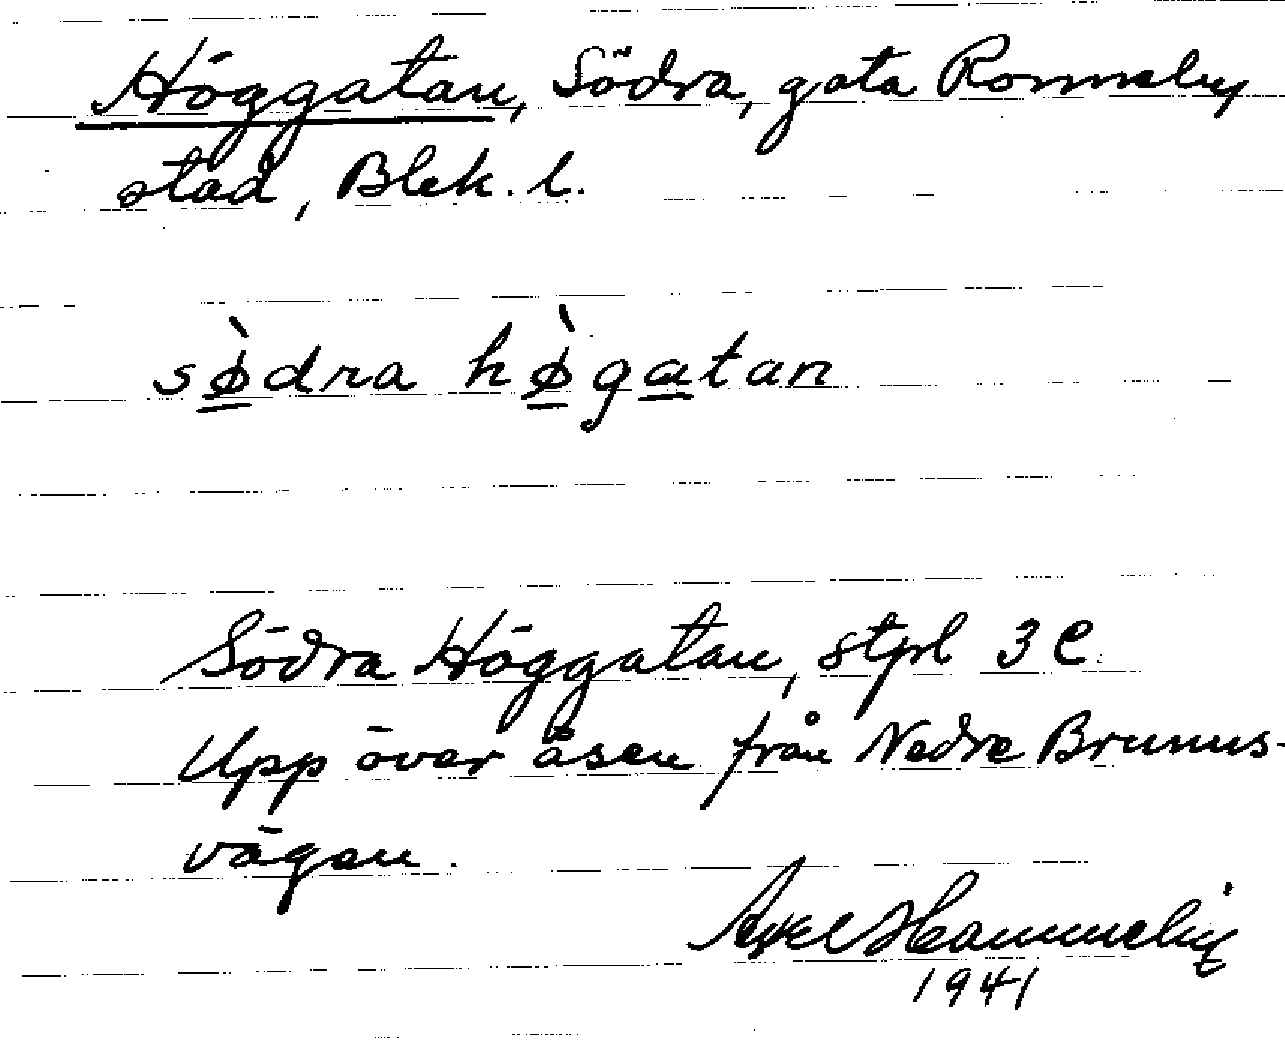 Höggatan, Södra, gata Ronneby
stad, Blek. l.
sø̀dra hø̀gatan
Södra Höggatan, stpl 3 C.
Upp över åsen från Nedre Brunns-
vägen.
Axel
1941